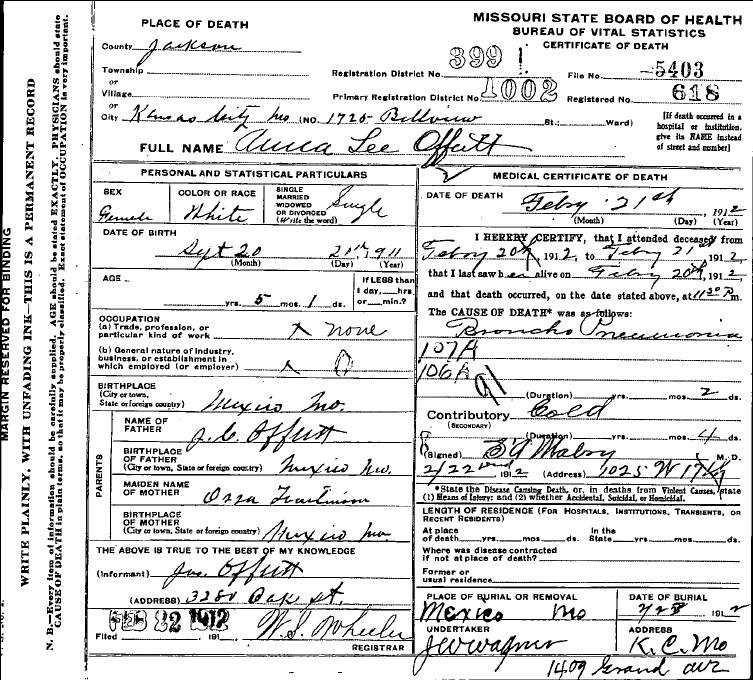 MISSOURI STATE BOARD OF HEALTH
BUREAU OF VITAL STATISTICS
CERTIFICATE OF DEATH
PLACE OF DEATH
County Jackson
Township
or
Village
or
City Kansas City Mo (NO. 1725 Bellview St.; Ward)
Registration District No. 399
File No. 5403
Primary Registration District No. 1002
Registered No. 618
[If death occurred in a
hospital or institution,
give its NAME instead
of street and number]
FULL NAME Anna Lee Offutt
PERSONAL AND STATISTICAL PARTICULARS
SEX
Female
COLOR OR RACE
White
SINGLE
MARRIED
WIDOWED
OR DIVORCED
(Write the word)
Single
DATE OF BIRTH
Sept 20 1911
(Month) (Day) (Year)
AGE
yrs. 5 mos. 1 ds.
If LESS than
1 day, hrs.
or min.?
OCCUPATION
(a) Trade, profession, or
particular kind of work none
(b) General nature of industry,
business, or establishment in
which employed (or employer)
BIRTHPLACE
(City or town,
State or foreign country) Mexico Mo.
PARENTS
NAME OF
FATHER J. C. Offutt
BIRTHPLACE
OF FATHER
(City or town, State or foreign country) Mexico Mo.
MAIDEN NAME
OF MOTHER
BIRTHPLACE
OF MOTHER
(City or town, State or foreign country) Mexico Mo.
THE ABOVE IS TRUE TO THE BEST OF MY KNOWLEDGE
(Informant) Jas. Offutt
(ADDRESS) Oak St.
Filed FEB 22 1912 191
W. S. Wheeler
REGISTRAR
MEDICAL CERTIFICATE OF DEATH
DATE OF DEATH Feby 21st 1912
(Month) (Day) (Year)
I HEREBY CERTIFY, that I attended deceased from
Feby 20th, 1912, to Feby 21st 1912,
that I last saw her alive on Feby 20th, 1912,
and that death occurred, on the date stated above, at 11 30 P.m.
The CAUSE OF DEATH* was as follows:
Broncho Pneumonia
107A
106A
91
(Duration) yrs. mos. 2 ds.
Contributory Cold
(SECONDARY)
(Duration) yrs. mos. 4 ds.
(Signed) M.D.
2/22nd 1912 (Address) 1025 W 17th
*State the Disease Causing Death, or, in deaths from Violent Causes, state
(1) Means of Injury; and (2) whether Accidental, Suicidal, or Homicidal.
LENGTH OF RESIDENCE (FOR HOSPITALS, INSTITUTIONS, TRANSIENTS, OR
RECENT RESIDENTS)
At place
of death yrs. mos. ds.
In the
State yrs. mos. ds.
Where was disease contracted
if not at place of death?
Former or
usual residence
PLACE OF BURIAL OR REMOVAL
Mexico Mo
DATE OF BURIAL
1912
UNDERTAKER
J W Wagner
ADDRESS
K. C. Mo
1409 Grand ave
MARGIN RESERVED FOR BINDING
WRITE PLAINLY, WITH UNFADING INK—THIS IS A PERMANENT RECORD
N. B.—Every item of information should be carefully supplied. AGE should be stated EXACTLY. PHYSICIANS should state
CAUSE OF DEATH in plain terms, so that it may be properly classified. Exact statement of OCCUPATION is very important.